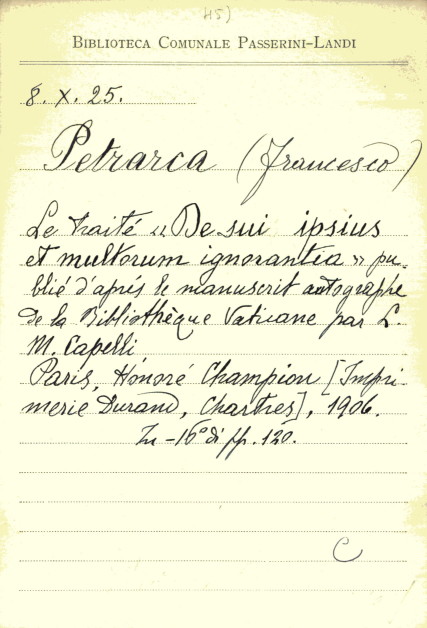 45)
BIBLIOTECA COMUNALE PASSERINI-LANDI
8. X. 25.
Petrarca (Francesco)
Le traité «De sui ipsius
et multorum ignorantia» pu-
blié d'aprés le manuscrit autographe
de la Bibliothèque Vaticane par L.
M. Capelli
Paris, Hónoré Champion [Impri-
merie Durand, Chartres], 1906.
In-16° di pp. 120.
C